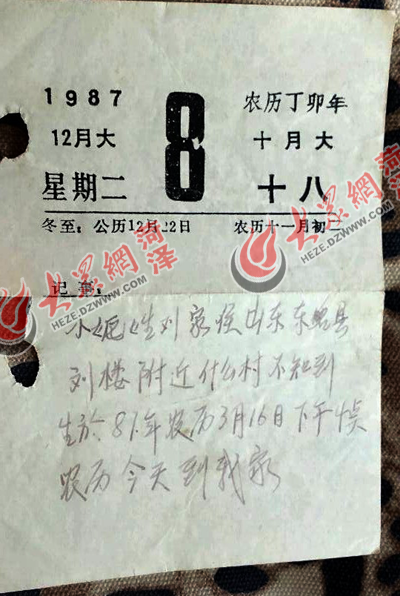 1987
8
农历丁卯年
12月大
十月大
星期二
十八
冬至：公历12月22日
农历十一月初二
记事：
小妮姓刘家侯山东东明县
刘楼附近什么村不知到
生於87年农历3月16日下午
农历今天到我家
大眾網 菏泽
HEZE.DZWWW.COM
大眾網 菏泽
HEZE.DZWWW.COM